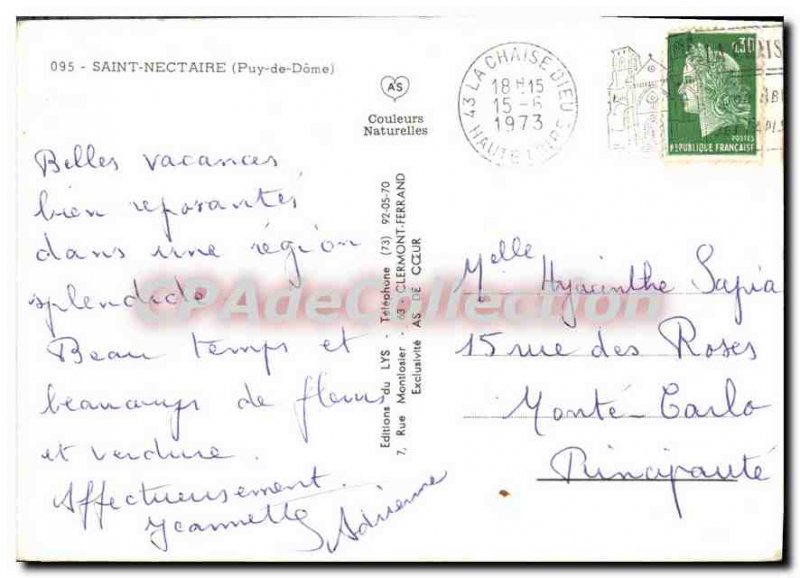 095 - SAINT-NECTAIRE (Puy-de-Dôme)
AS
Couleurs
Naturelles
43 LA CHAISE DIEU
18H15
15-6
1973
HAUTE LOIRE
0,30
POSTES
REPUBLIQUE FRANÇAISE
Belles vacances
bien reposantes
dans une région
splendide
Beau temps et
beaucoups de fleurs
et verdure.
Affectueusement.
Jeannette
Adrienne
Editions du LYS - Téléphone (73) 92-05-70
7, Rue Montlosier - 63 CLERMONT-FERRAND
Exclusivité AS DE CŒUR
Melle Hyacinthe Sapia
15 rue des Roses
Monté-Carlo
Principauté
CPAdeCollection